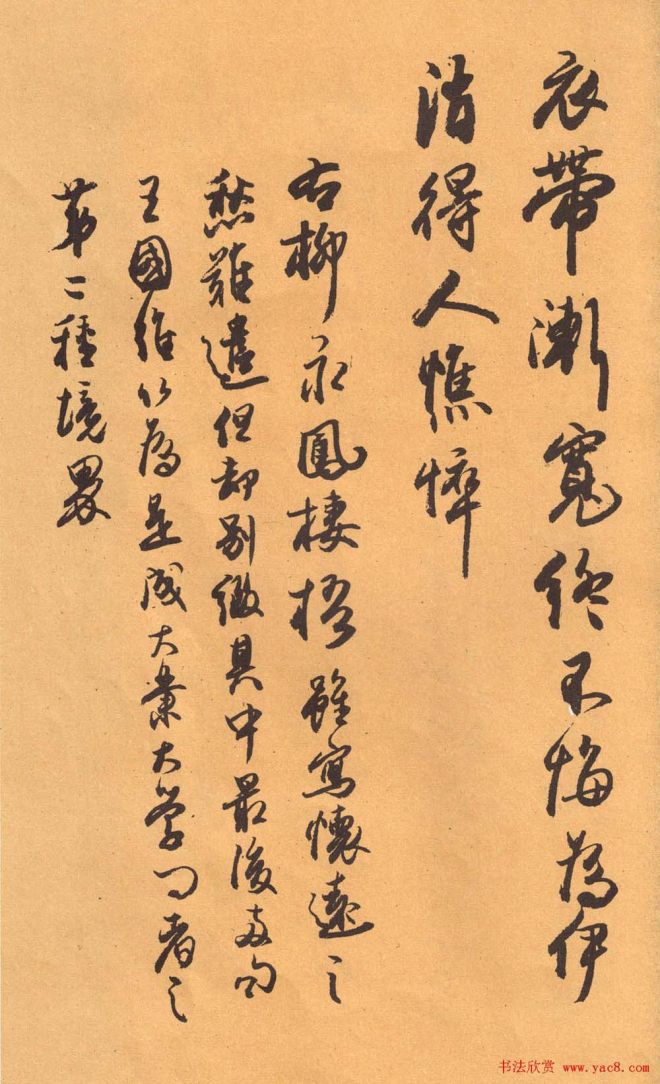 衣帶漸寬終不悔為伊
消得人憔悴
右柳永鳳棲梧雖寫懷遠之
愁難遣但却別徽具中最後两句
王國維以為是成大業大学问者之
第二種境界
书法欣赏 www.yac8.com